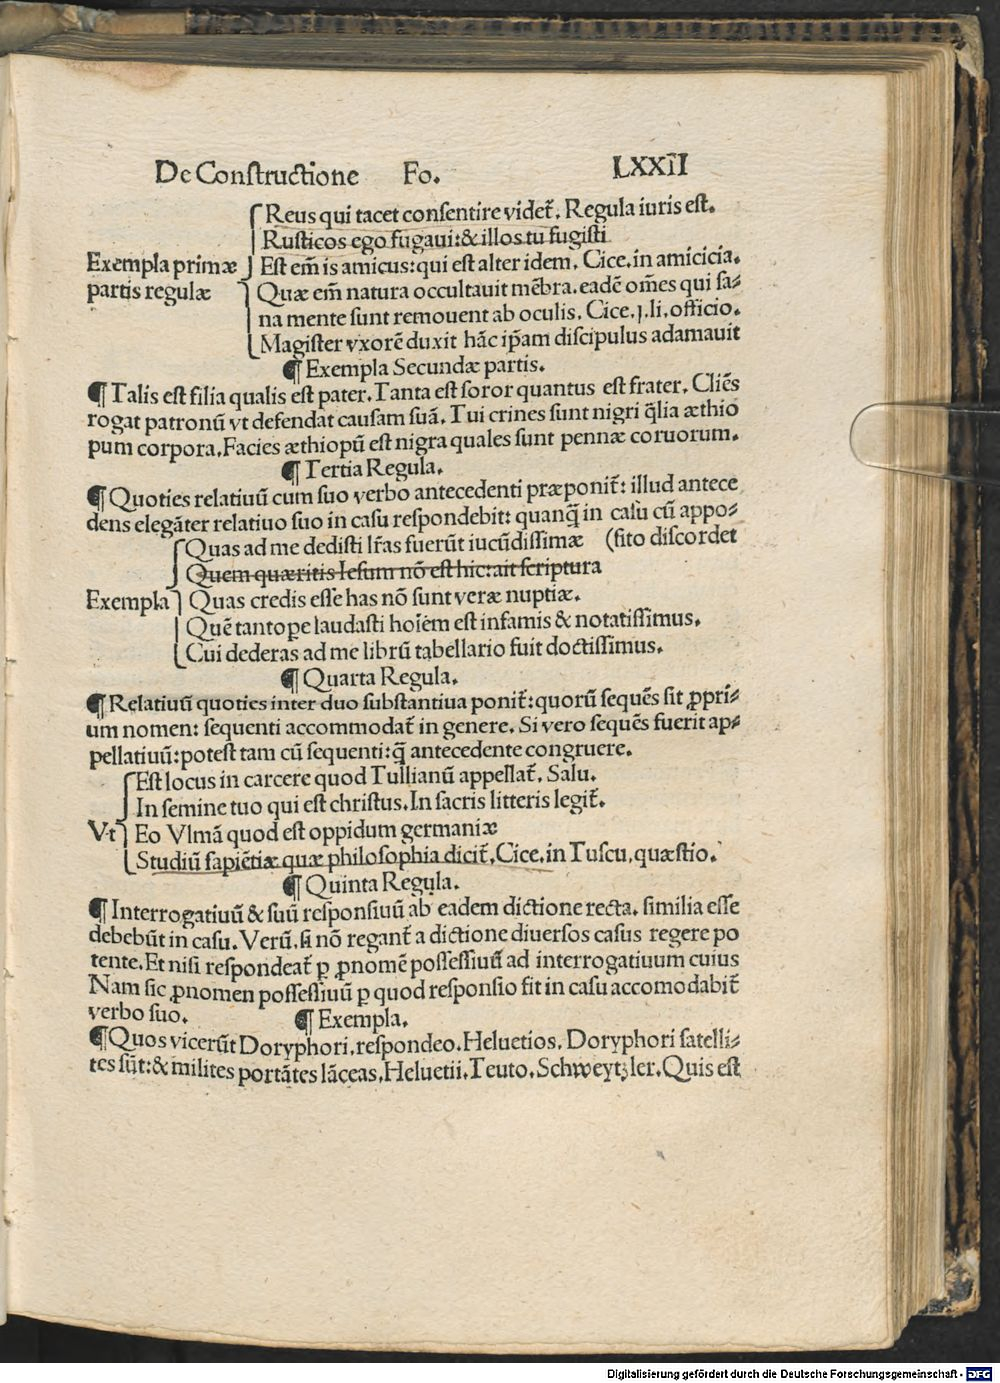 De Constructione Fo. LXXII
Reus qui tacet consentire videt̃. Regula iuris est.
Rusticos ego fugaui: & illos tu fugisti
Exempla primæ Est em̃ is amicus: qui est alter idem. Cice. in amicicia.
partis regulæ Quæ em̃ natura occultauit mẽbra. eadẽ om̃es qui sa⸗
na mente sunt remouent ab oculis. Cice. j. li. officio.
Magister vxorẽ duxit hãc ip̃am discipulus adamauit
¶ Exempla Secundæ partis.
¶ Talis est filia qualis est pater. Tanta est soror quantus est frater. Cliẽs
rogat patronũ vt defendat causam suã. Tui crines sunt nigri q̃lia æthio
pum corpora. Facies æthiopũ est nigra quales sunt pennæ coruorum.
¶ Tertia Regula.
¶ Quoties relatiuũ cum suo verbo antecedenti præponit̃: illud antece
dens elegãter relatiuo suo in casu respondebit: quanq̃ in casu cũ appo⸗
Quas ad me dedisti lr̃as fuerũt iucũdissimæ (sito discordet
Quem quæritis Iesum nõ est hic: ait scriptura
Exempla Quas credis esse has nõ sunt veræ nuptiæ.
Quẽ tantope laudasti hoiẽm est infamis & notatissimus.
Cui dederas ad me librũ tabellario fuit doctissimus.
¶ Quarta Regula.
¶ Relatiuũ quoties inter duo substantiua ponit̃: quorũ sequẽs sit ꝓpri⸗
um nomen: sequenti accommodat̃ in genere. Si vero sequẽs fuerit ap⸗
pellatiuũ: potest tam cũ sequenti: q̃ antecedente congruere.
Est locus in carcere quod Tullianũ appellat̃. Salu.
In semine tuo qui est christus. In sacris litteris legit̃.
Vt Eo Vlmã quod est oppidum germaniæ
Studiũ sapiẽtiæ quæ philosophia dicit̃. Cice. in Tuscu. quæstio.
¶ Quinta Regula.
¶ Interrogatiuũ & suũ responsiuũ ab eadem dictione recta. similia esse
debebũt in casu. Verũ. si nõ regant̃ a dictione diuersos casus regere po
tente. Et nisi respondeat̃ ꝑ ꝓnomẽ possessiuũ ad interrogatiuum cuius
Nam sic ꝓnomen possessiuũ ꝑ quod responsio fit in casu accomodabit̃
verbo suo. ¶ Exempla.
¶ Quos vicerũt Doryphori. respondeo. Heluetios. Doryphori satelli⸗
tes sũt: & milites portãtes lãceas. Heluetii. Teuto. Schweytzler. Quis est
Digitalisierung gefördert durch die Deutsche Forschungsgemeinschaft - DFG